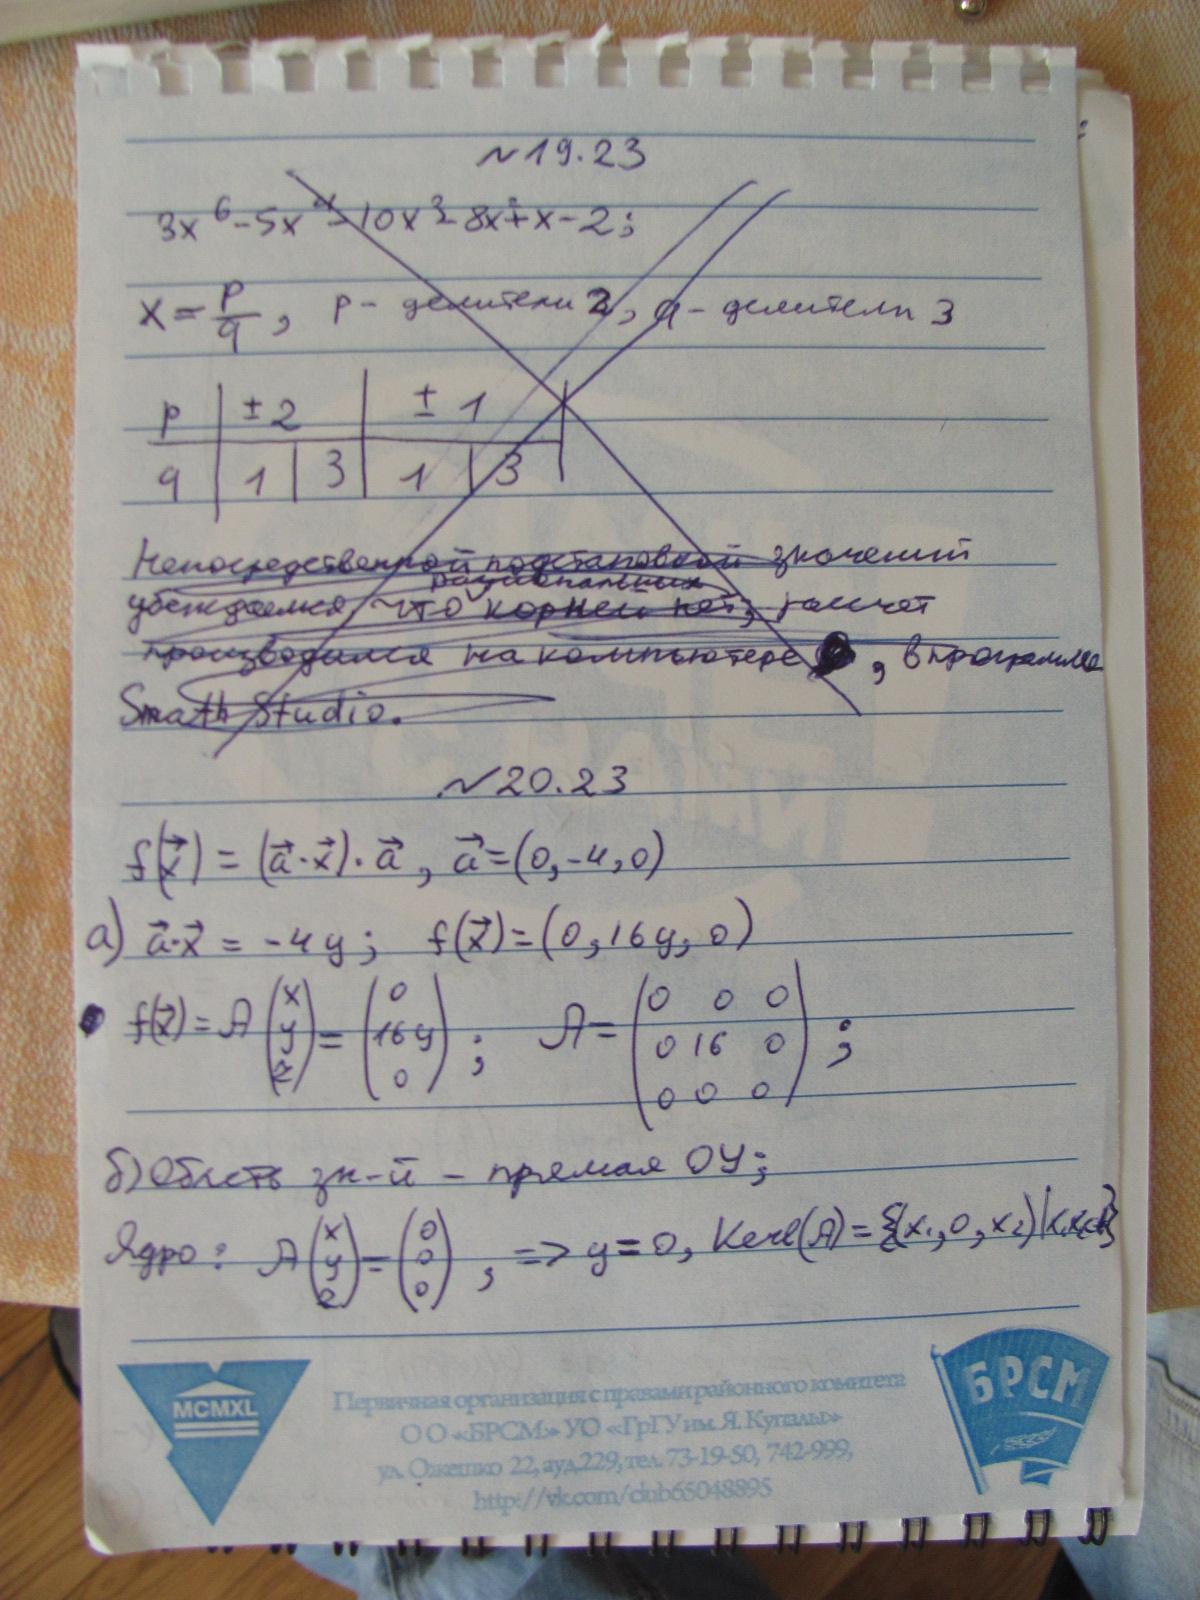 №19.23
3x⁶-5x⁴-10x³-8x²+x-2;
x = p/q, p - делители 2, q - делители 3
p | ±2 | ±1
q | 1 | 3 | 1 | 3
Непосредственной подстановкой значений
рациональных
убеждаемся что корней нет, рассчет
производился на компьютере, в программе
Smath Studio.
№20.23
f(x⃗) = (a⃗·x⃗)·a⃗, a⃗=(0,-4,0)
а) a⃗·x⃗ = -4y; f(x⃗)=(0,16y,0)
f(x⃗) = A (x y z) = (0 16y 0); A = (0 0 0
0 16 0
0 0 0);
б) Область зн-й - прямая OY;
Ядро: A (x y z) = (0 0 0), => y=0, Kerl(A) = {(x₁,0,x₂)|
MCMXL
Первичная организация с правами районного комитета
О О «БРСМ» УО «ГрГУ им. Я. Купалы»
ул. Ожешко 22, ауд.229, тел. 73-19-50, 742-999,
http://vk.com/club65048895
БРСМ